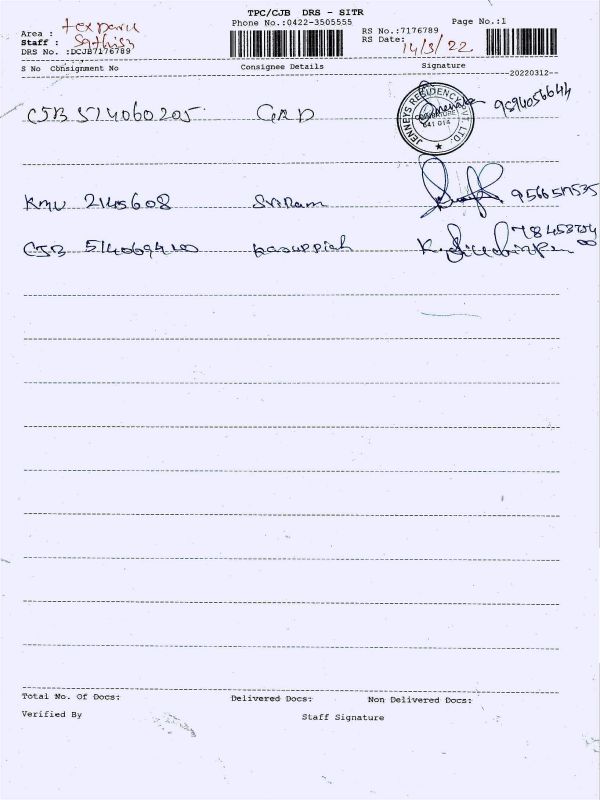 TPC/CJB DRS - SITR
Phone No.:0422-3505555
Page No.:1
Area : texpark
Staff : Sathish
DRS No. :DCJB7176789
RS No.:7176789
RS Date: 14/3/22
S No Cbnsignment No Consignee Details Signature
--20220312--
CJB 514060205 GRD
JENNEYS RESIDENCY PVT. LTD.
COIMBATORE
641 014
9594056644
KMU 2145608 Sriram
CJB 514069400 karuppiah
Total No. Of Docs: Delivered Docs: Non Delivered Docs:
Verified By Staff Signature